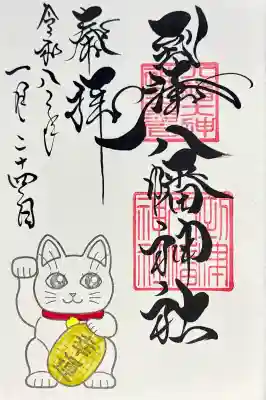 到津八幡神社
奉拝
令和八年
一月二十四日
幸運